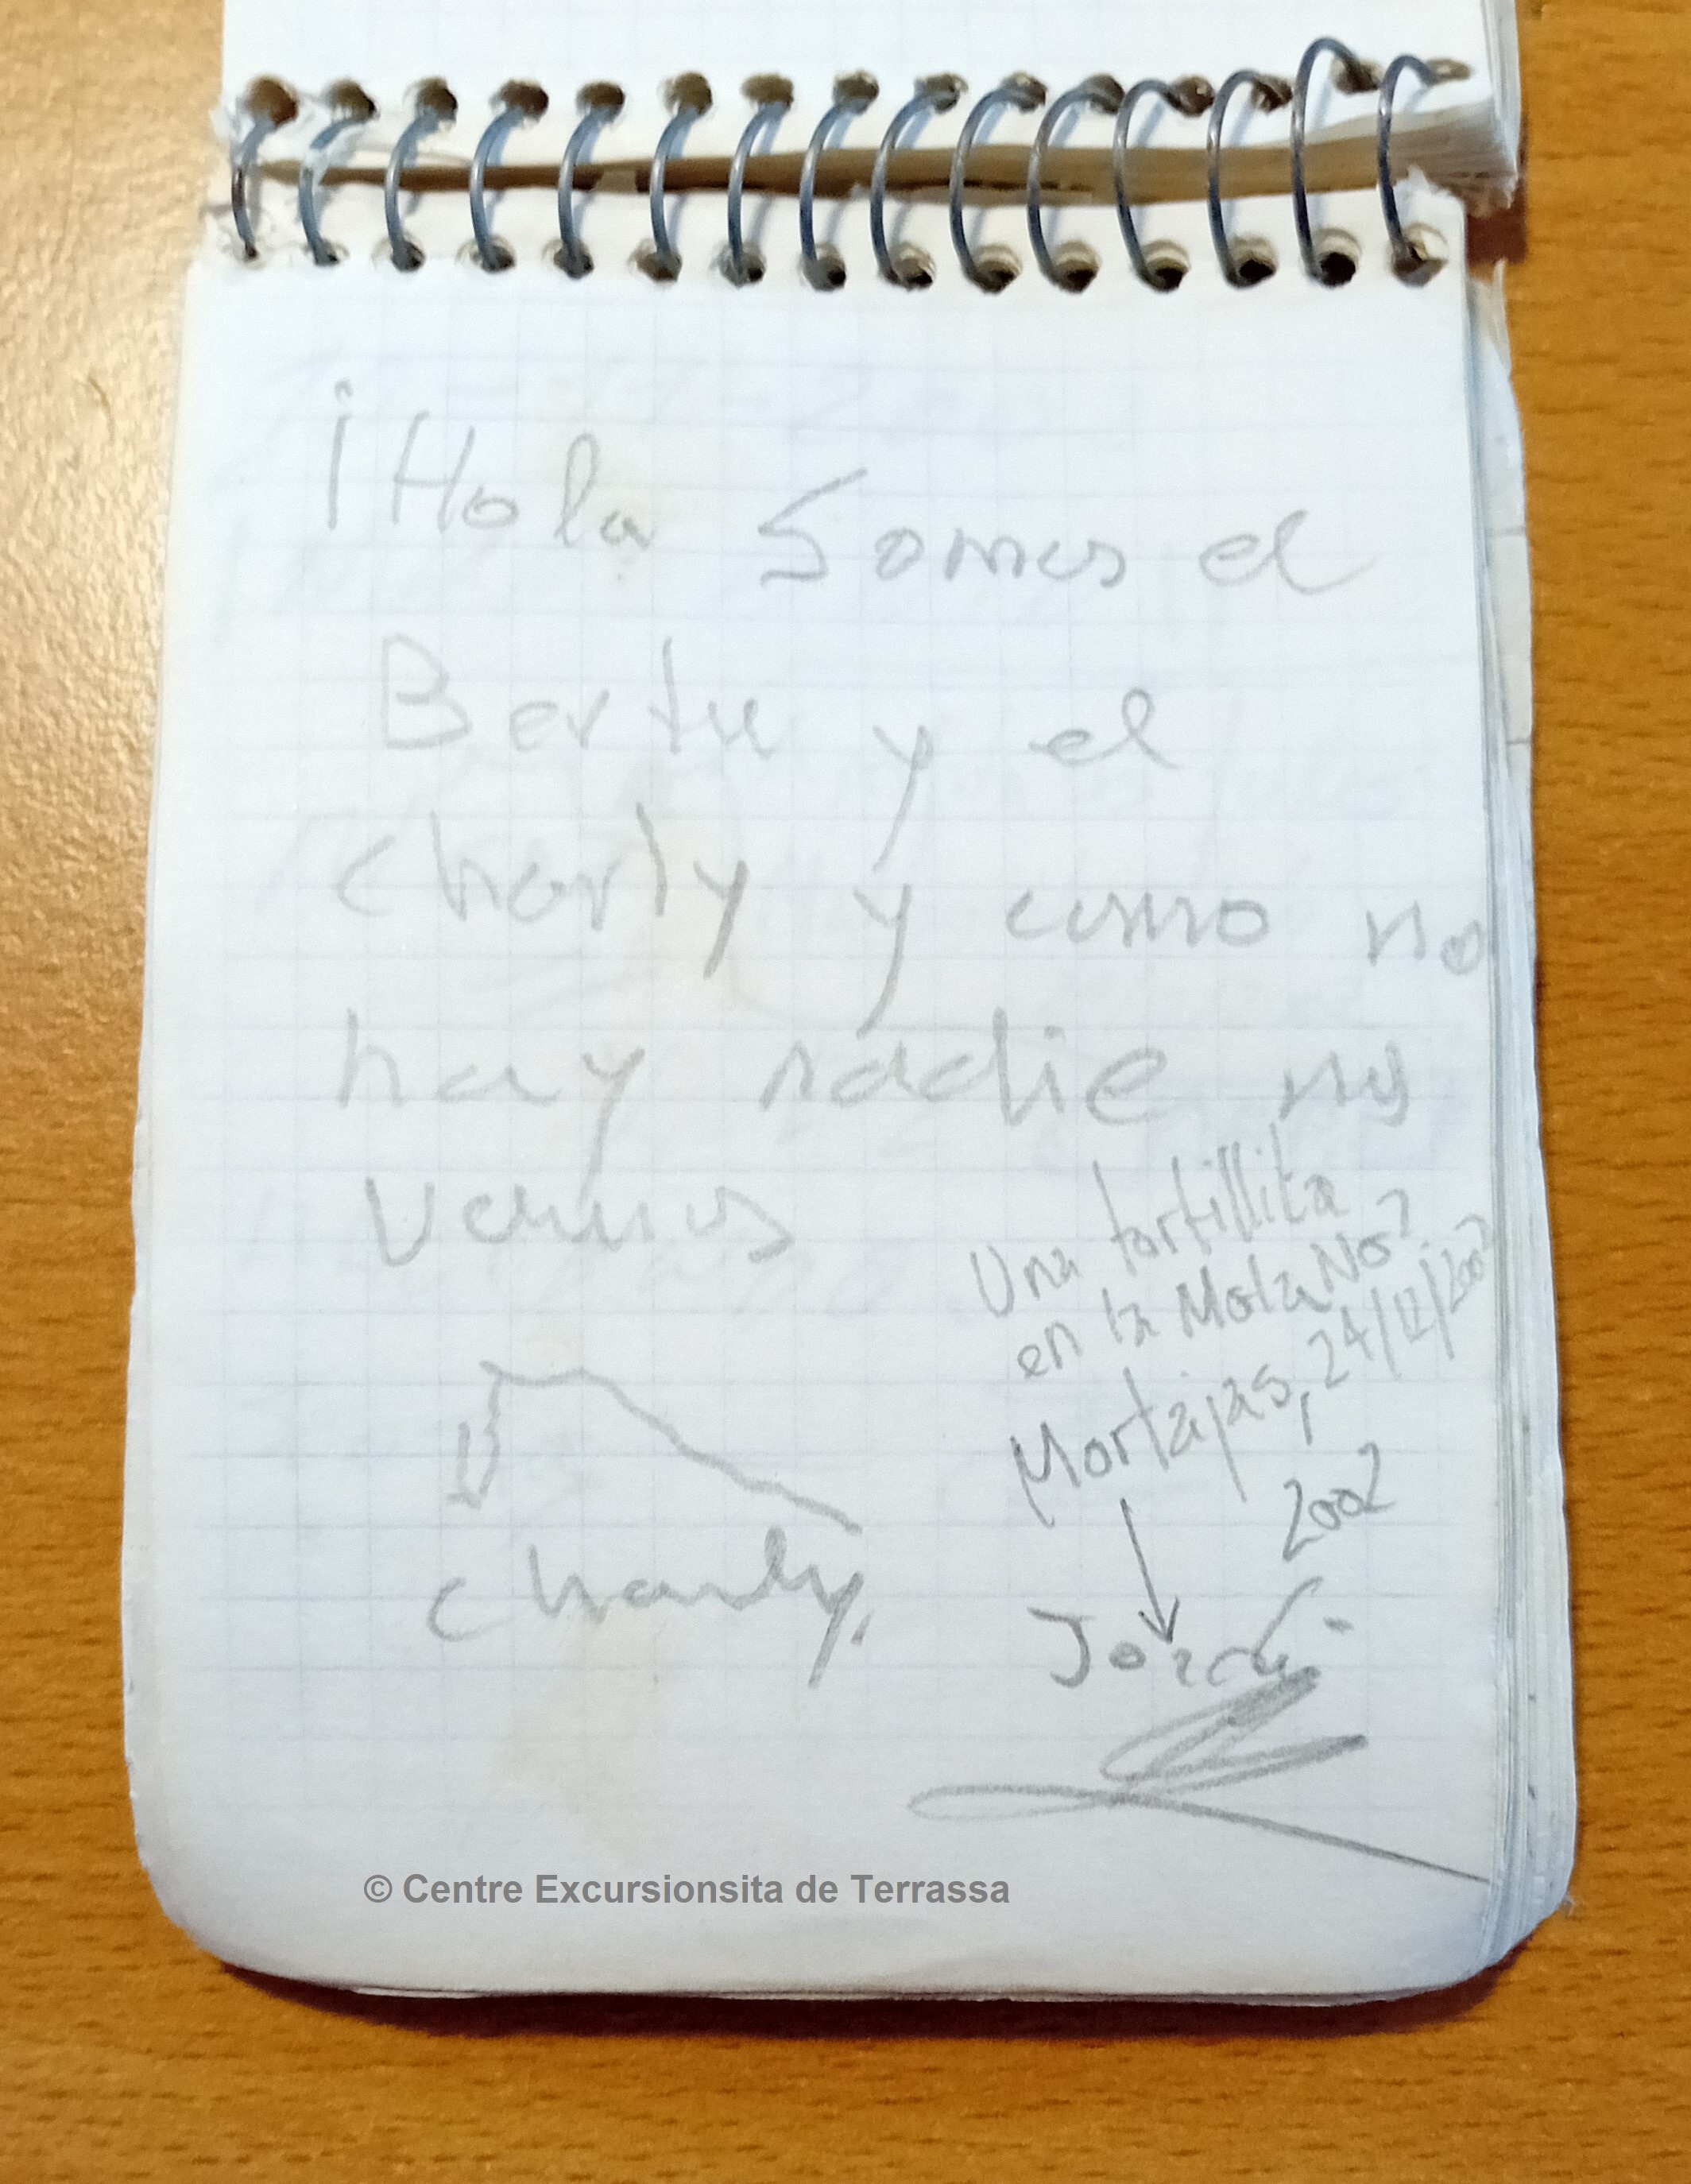 ¡Hola Somos el
Bertu y el
Charly y como no
hay nadie nos
vamos
Una tortillita
en la Mola No?
Mortajas, 24/12/2002
2002
Charly.
Jordi
© Centre Excursionsita de Terrassa